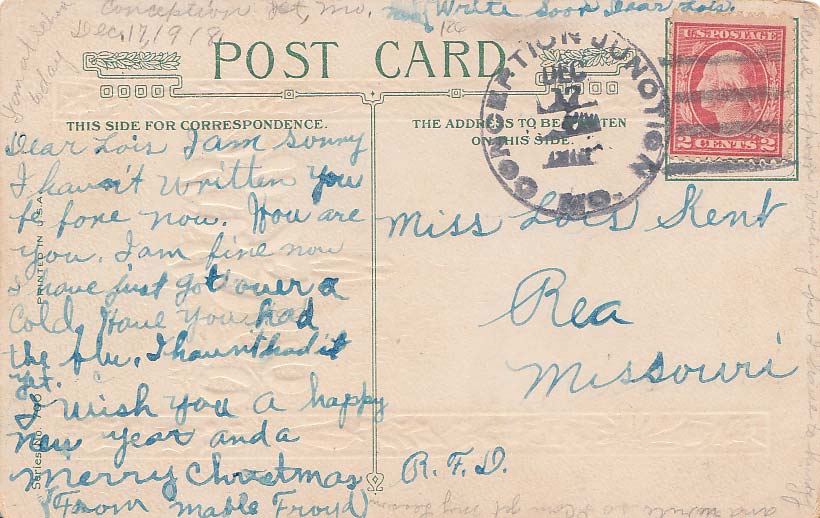 Conception Jct, Mo.
Write Soon Dear Lois.
Dec. 17, 1918
I am at School
today
POST CARD
THIS SIDE FOR CORRESPONDENCE.
THE ADDRESS TO BE WRITTEN
ON THIS SIDE.
CONCEPTION JUNCTION
MO.
DEC
17
U.S. POSTAGE
2 CENTS 2
Dear Lois I am sorry
I havn't written you
be fore now. How are
you. I am fine now
I have just got over a
Cold. Have you had
the flu. I havnt had it
yet.
I wish you a happy
new year and a
Merry Christmas
(From Mable Froyd)
Miss Lois Kent
Rea
Missouri
R.F.D.
PRINTED IN U.S.A.
"Series No. 700
Excuse my poor writing but I have to hurry
and write so I can get my lesson